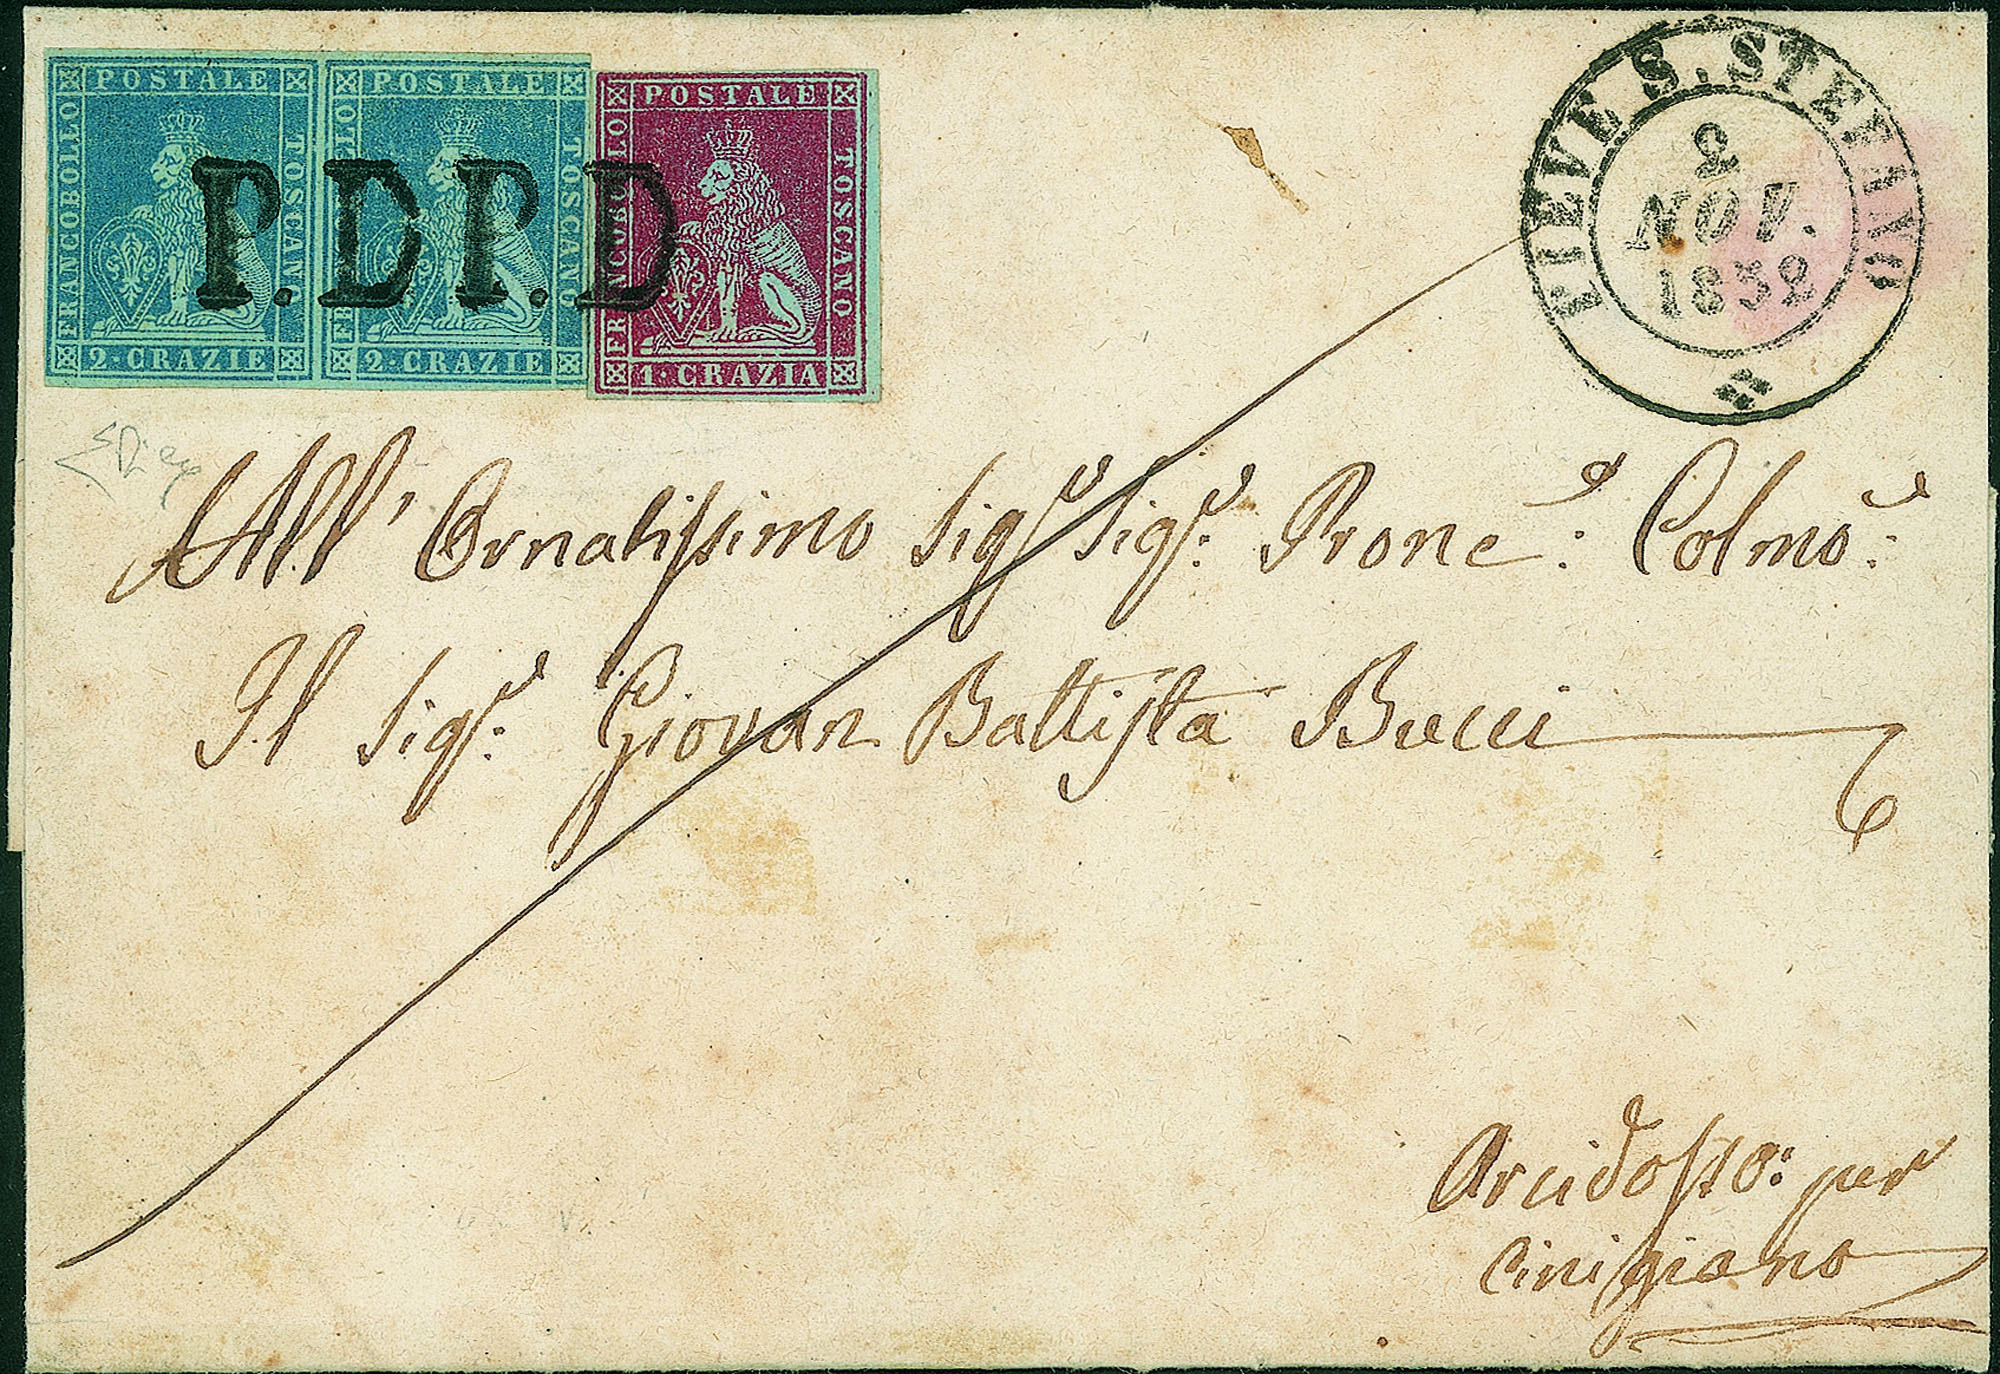 POSTALE POSTALE POSTALE
FRANCOBOLLO TOSCANO FRANCOBOLLO TOSCANO FRANCOBOLLO TOSCANO
2·CRAZIE 2·CRAZIE 1·CRAZIA
P.D P.D
PIEVE S. STEFANO
2
NOV.
1852
All' Ornatissimo Sigr Sigr: Prone: Colmo:
Il Sigr: Giovan Battista Bucci
Arcidosso: per
Cinigiano